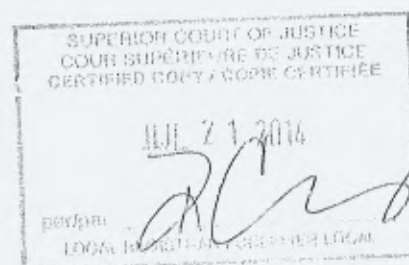 SUPERIOR COURT OF JUSTICE
COUR SUPÉRIEURE DE JUSTICE
CERTIFIED COPY / COPIE CERTIFIÉE
JUL 21 2014
per/par
LOCAL REGISTRAR / GREFFIER LOCAL